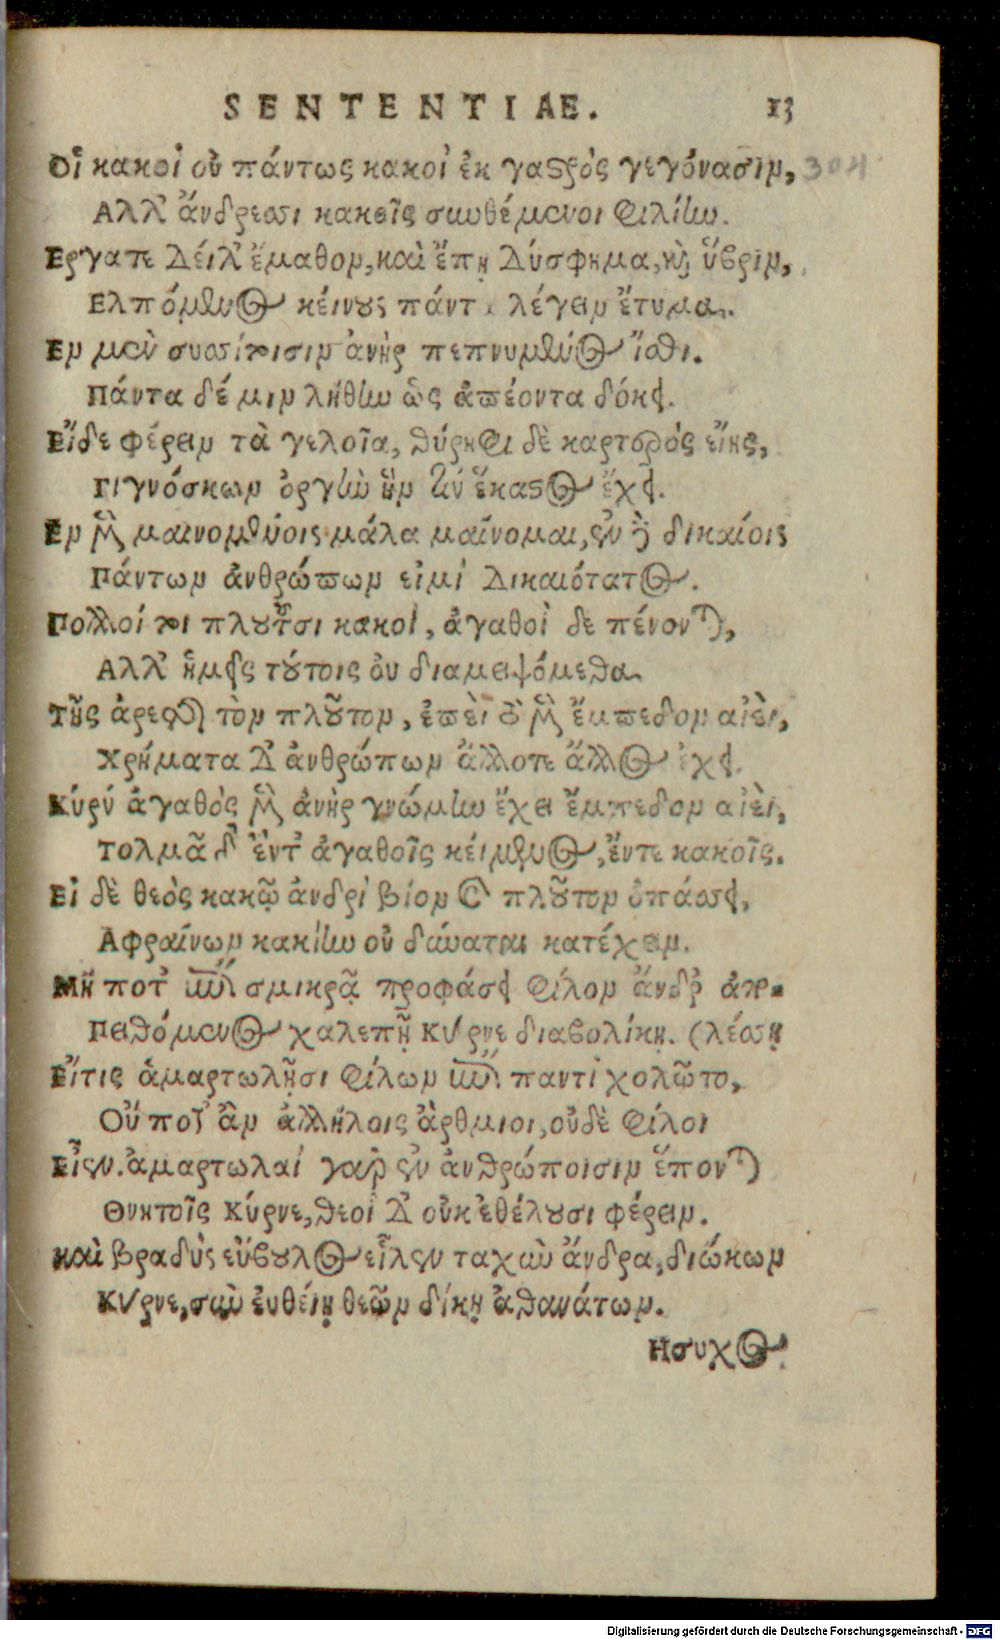 SENTENTIAE. 13
Οἱ κακοὶ οὐ πάντως κακοὶ ἐκ γαστρὸς γεγόνασιν, 304
Αλλ' ἄνδρεσσι κακοῖς συνθέμενοι φιλίην.
Εργατε δείλ' ἔμαθον, καὶ ἔπη δύσφημα, καὶ ὕβριν,
Ελπόμενος κείνους πάντ λέγειν ἔτυμα.
Εν μὲν συσσίτοισιν ἀνὴρ πεπνυμένος ἴσθι.
Πάντα δέ μιν λήθην ὣς ἀπέοντα δόκει.
Εἴδε φέρειν τὰ γελοῖα, θύρηφι δὲ καρτερὸς εἴης,
Γιγνόσκων ὀργὴν ἣν τιν ἕκαστος ἔχει.
Εν μὲν μαινομένοις μάλα μαίνομαι, ἐν δὲ δικαίοις
Πάντων ἀνθρώπων εἰμὶ δικαιότατος.
Πολλοί τοι πλουτοῦσι κακοὶ, ἀγαθοὶ δε πένονται,
Αλλ' ἡμεῖς τούτοις οὐ διαμειψόμεθα
Τῆς ἀρετῆς τὸν πλοῦτον, ἐπεὶ τὸ μὲν ἔμπεδον αἰεὶ,
Χρήματα δ' ἀνθρώπων ἄλλοτε ἄλλος ἔχει.
Κύρν' ἀγαθὸς μὲν ἀνὴρ γνώμην ἔχει ἔμπεδον αἰεὶ,
Τολμᾷ δ' ἔντ' ἀγαθοῖς κείμενος, ἔντε κακοῖς.
Εἰ δὲ θεὸς κακῷ ἀνδρὶ βίον καὶ πλοῦτον ὀπάσσει,
Αφραίνων κακίην οὐ δύναται κατέχειν.
Μή ποτ' ἐπὶ σμικρᾷ προφάσει φίλον ἄνδρ' ἀπο-
Πειθόμενος χαλεπῇ Κύρνε διαβολίῃ. (λέσσῃ
Εἴτις ἁμαρτωλῇσι φίλων ἐπὶ παντὶ χολῷτο,
Οὔ ποτ' ἂν ἀλλήλοις ἄρθμιοι, οὐδὲ φίλοι
Εἶεν. ἁμαρτωλαὶ γαρ ἐν ἀνθρώποισιν ἕπονται
Θνητοῖς Κύρνε, θεοὶ δ' οὐκ ἐθέλουσι φέρειν.
καὶ βραδὺς εὔβουλος εἷλεν ταχὺν ἄνδρα, διώκων
Κύρνε, σὺν ἐυθείῃ θεῶν δίκῃ ἀθανάτων.
Ησυχος
Digitalisierung gefördert durch die Deutsche Forschungsgemeinschaft - DFG